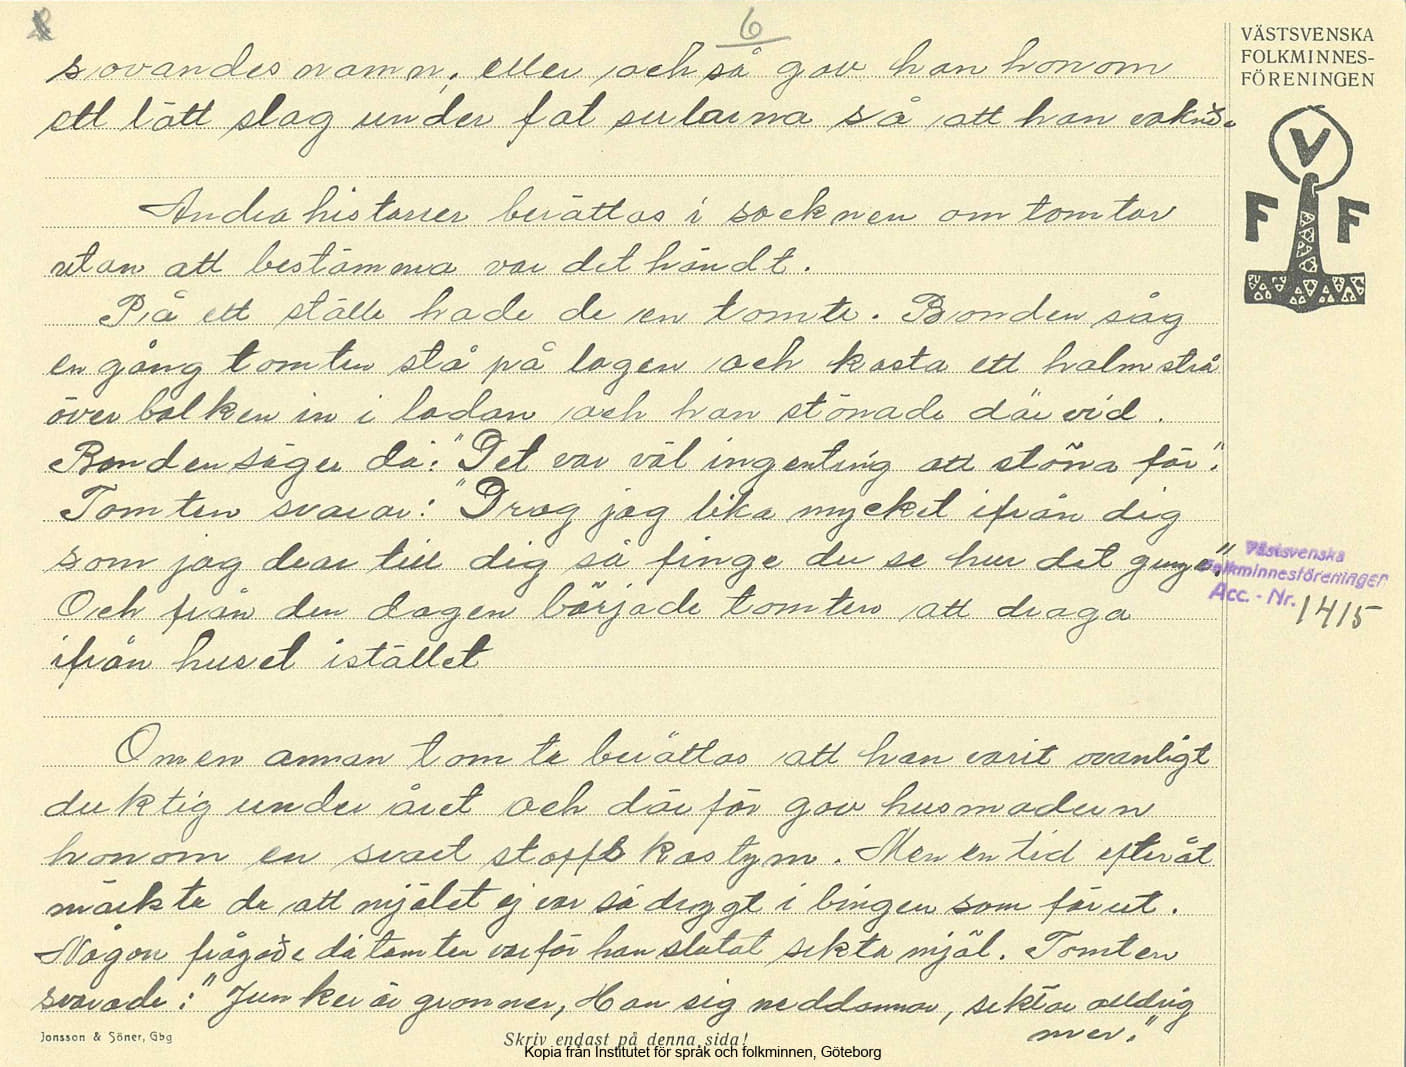 6
sovandes namn, eller och så gav han honom
ett lätt slag under fot sularna så att han vaknade
Andra historier berättas i socknen om tomtar
utan att bestämma var det händt.
På ett ställe hade de en tomte. Bonden såg
en gång tomten stå på logen och kasta ett halmstrå
över balken in i ladan och han stönade där vid.
Bonden säger då: "Det var väl ingenting att stöna för".
Tomten svarar: "Drog jag lika mycket ifrån dig
som jag drar till dig så finge du se hur det ginge."
Och från den dagen började tomten att draga
ifrån huset istället
Om en annan tomte berättas att han varit ovanligt
duktig under året och därför gav husmodern
honom en svart stofft kostym. Men en tid efteråt
märkte de att mjölet ej var så drygt i bingen som förut.
Någon frågade då tomten varför han slutat sikta mjöl. Tomten
svarade: "Junker är gronner, Han sig neddamnar, siktar alldrig
mer."
VÄSTSVENSKA
FOLKMINNES-
FÖRENINGEN
V
F F
Västsvenska
Folkminnesföreningen
Acc. - Nr. 1415
Jonsson & Söner, Gbg
Skriv endast på denna sida!
Kopia från Institutet för språk och folkminnen, Göteborg